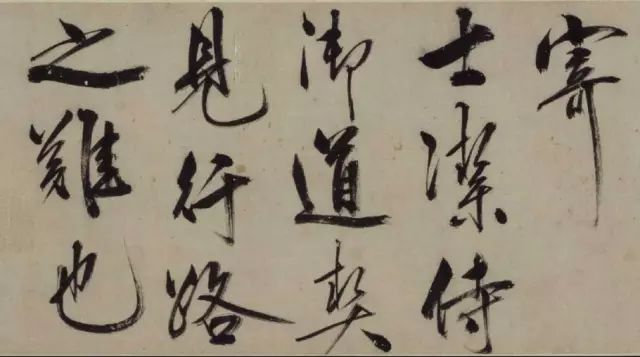 寄
士潔侍
御道契
見行路
之難也